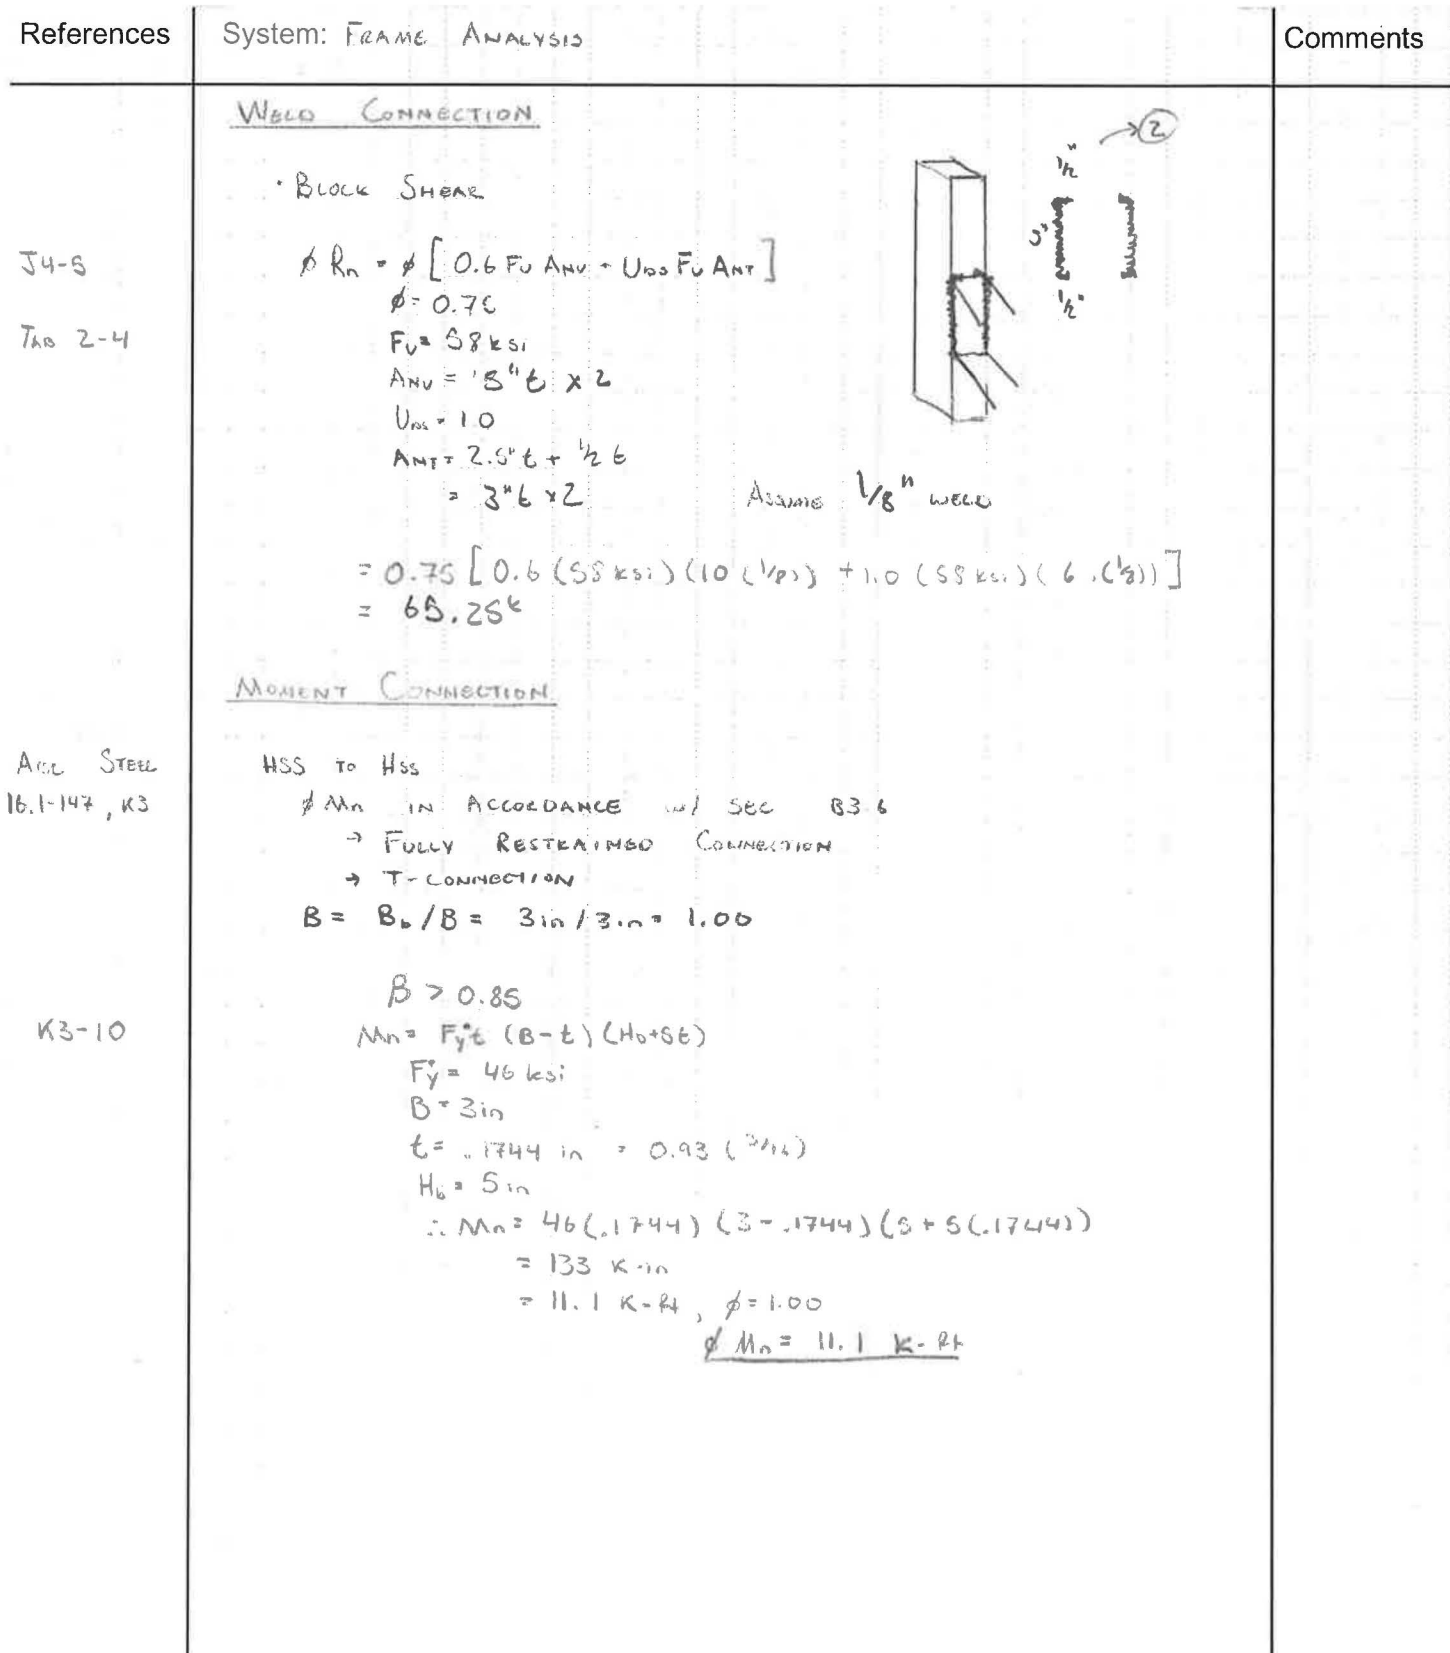 References
System: FRAME ANALYSIS
Comments
WELD CONNECTION
· BLOCK SHEAR
2
1/2"
5"
1/2"
J4-5
ϕ Rn = ϕ [0.6 Fu ANV + Ubs Fu ANT]
ϕ = 0.75
TAB 2-4
Fu = 58 ksi
ANV = 5" t x 2
Ubs = 1.0
ANT = 2.5" t + 1/2 t
= 3" t x 2
ASSUME 1/8" WELD
= 0.75 [0.6 (58 ksi) (10 (1/8)) + 1.0 (58 ksi) (6 (1/8))]
= 65.25k
MOMENT CONNECTION
STEEL
16.1-147, K3
HSS TO HSS
ϕ Mn IN ACCORDANCE w/ SEC B3.6
→ FULLY RESTRAINED CONNECTION
→ T-CONNECTION
B = Bb / B = 3in / 3in = 1.00
β > 0.85
K3-10
Mn = Fy*t (B-t) (Hb+5t)
Fy* = 46 ksi
B = 3in
t = .1744 in = 0.93 (3/16)
Hb = 5in
∴ Mn = 46(.1744) (3-.1744) (5 + 5(.1744))
= 133 k-in
= 11.1 k-ft, ϕ = 1.00
ϕ Mn = 11.1 k-ft